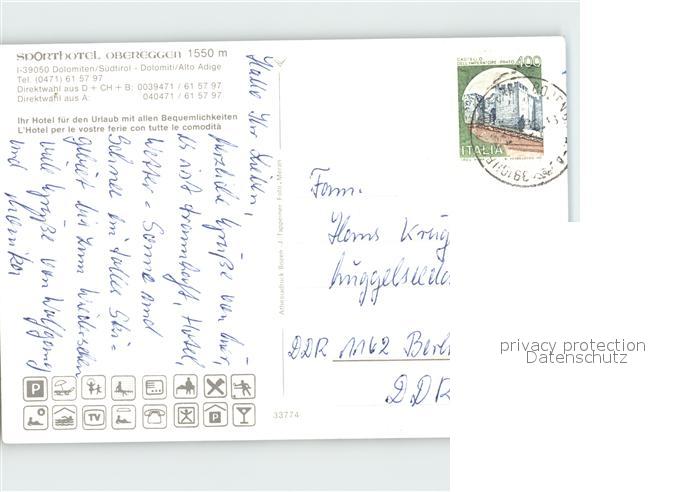 SPORTHOTEL OBEREGGEN 1550 m
I-39050 Dolomiten/Südtirol - Dolomiti/Alto Adige
Tel. (0471) 61 57 97
Direktwahl aus D + CH + B: 0039471 / 61 57 97
Direktwahl aus A: 040471 / 61 57 97
Ihr Hotel für den Urlaub mit allen Bequemlichkeiten
L'Hotel per le vostre ferie con tutte le comodità
Hallo Ihr Lieben,
herzliche Grüße von hier,
es ist traumhaft, Hotel,
Wetter = Sonne und
Schnee ein tolles Ski=
gebiet bis zum Wiedersehen
viele Grüße von Wolfgang
und Monika
Athesiadruck Bozen - J. Tappeiner Foto, Meran
33774
CASTELLO
DELL'IMPERATORE PRATO
400
ITALIA
Fam.
Hans Krüg
Müggelseeda
DDR 1162 Berl
DDR
P
TV
P
privacy protection
Datenschutz